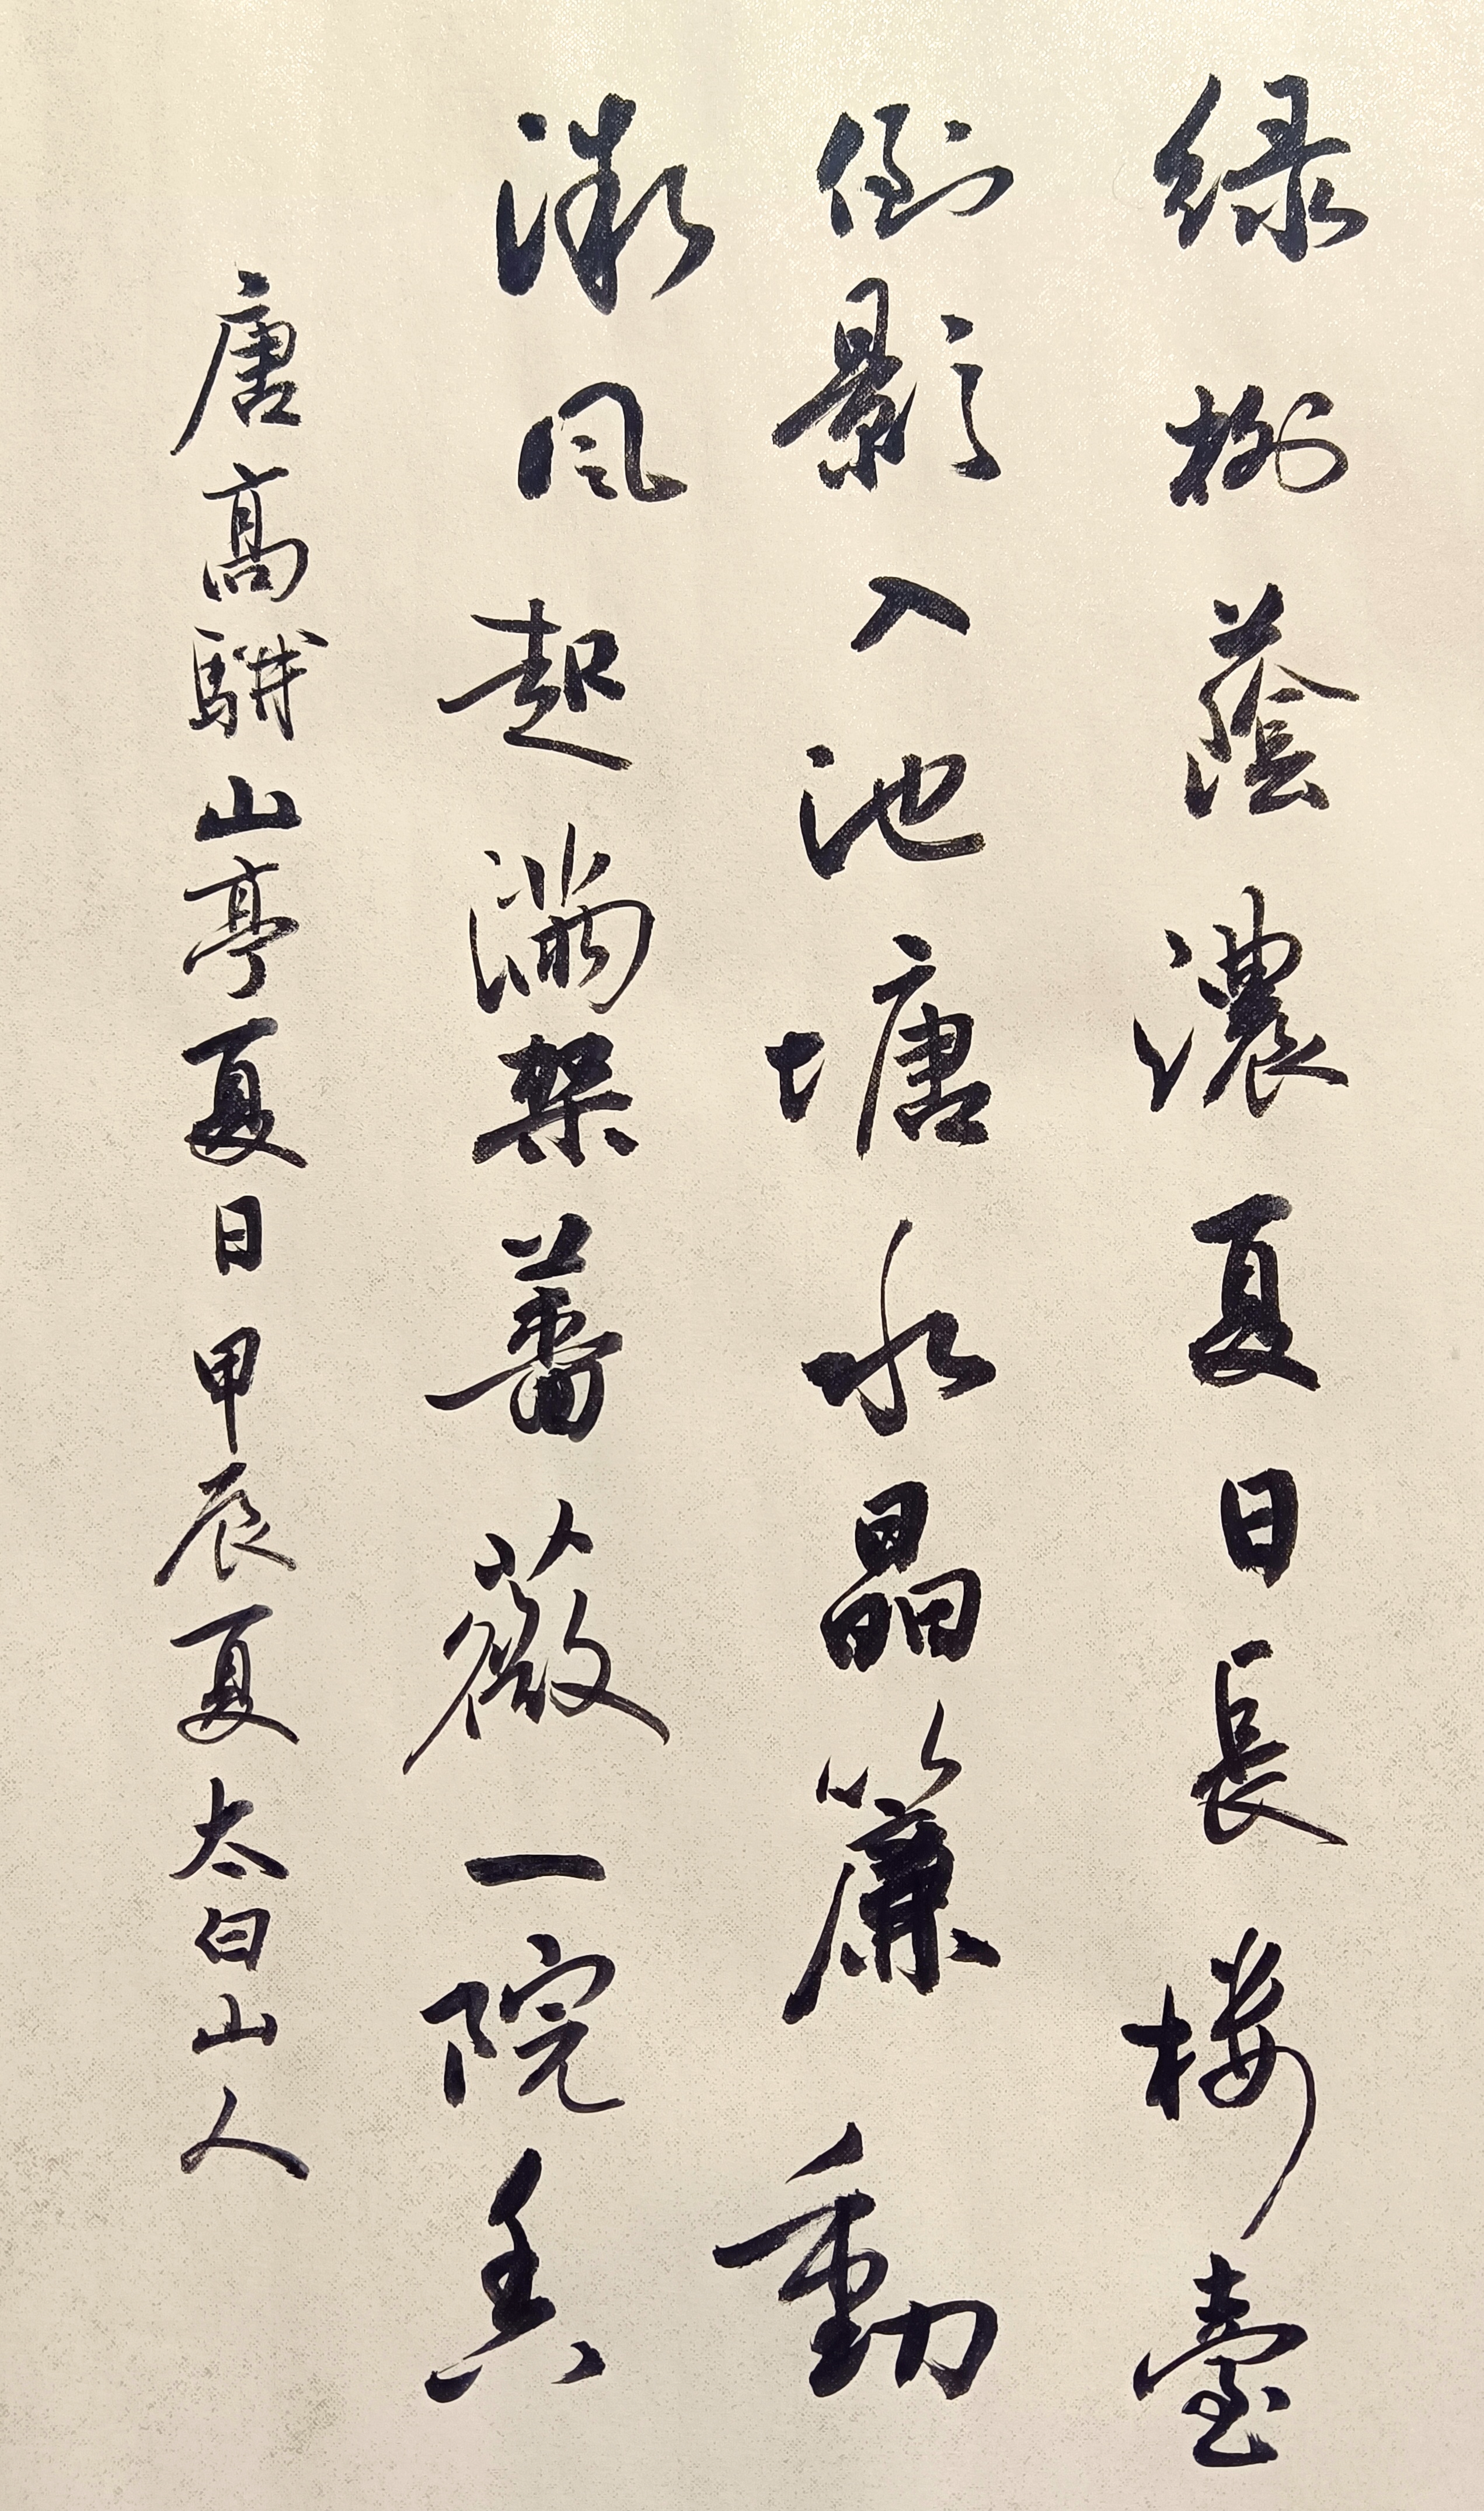 緑樹蔭濃夏日長樓臺
倒影入池塘水晶簾動
微風起滿架薔薇一院香
唐高駢山亭夏日甲辰夏太白山人